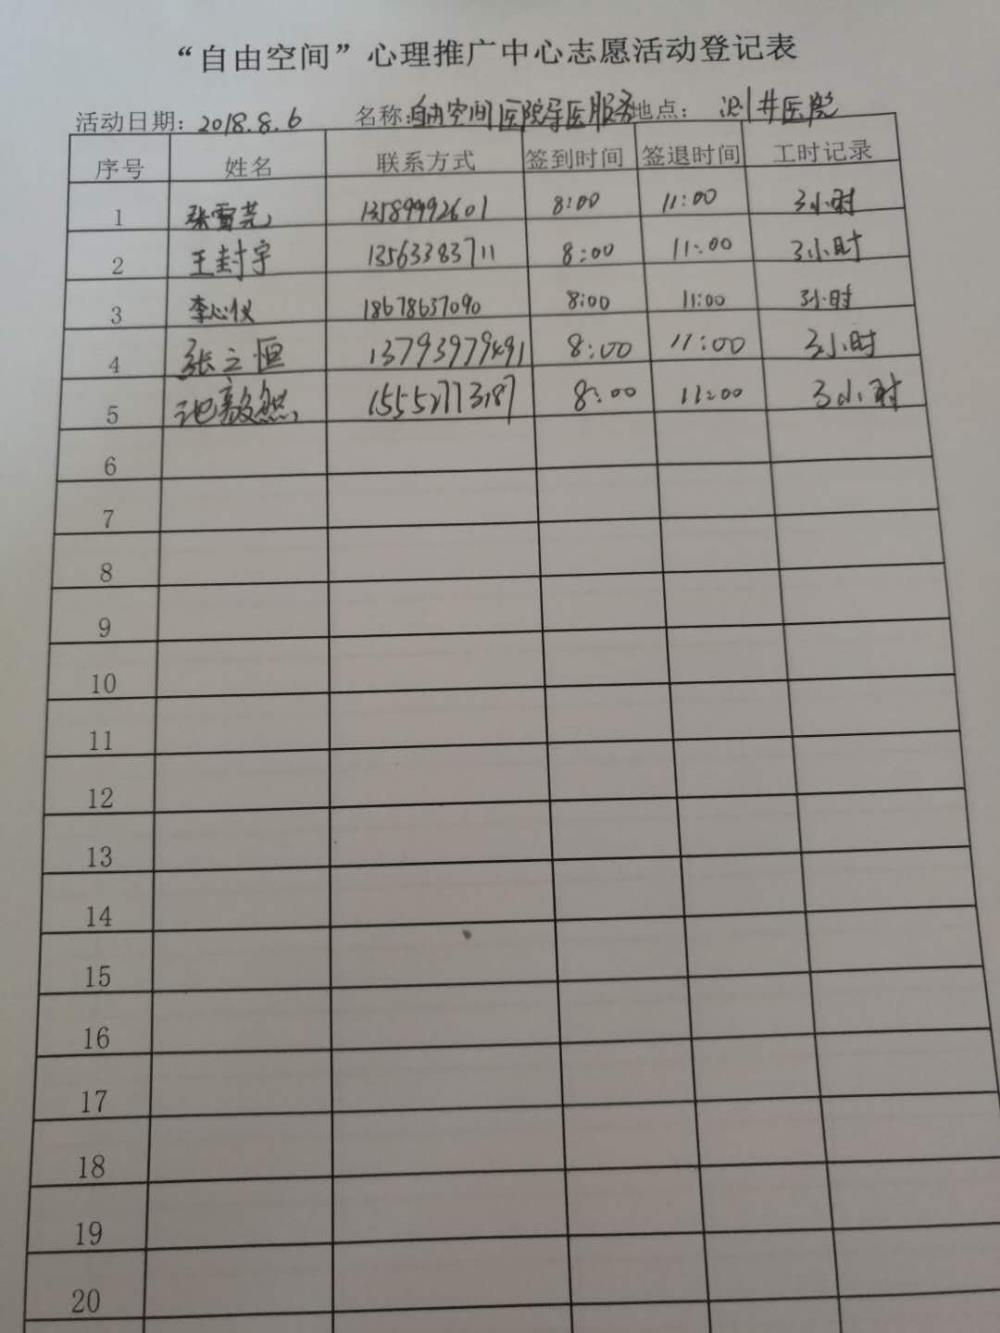 “自由空间”心理推广中心志愿活动登记表
活动日期：2018.8.6 名称：自由空间医院导医服务 地点： 测井医院
序号 姓名 联系方式 签到时间 签退时间 工时记录
1 张雪莞 13589992601 8:00 11:00 3小时
2 王封宇 13563383711 8:00 11:00 3小时
3 李心仪 18678637090 8:00 11:00 3小时
4 张立恒 13793979491 8:00 11:00 3小时
5 池毅然 15552773187 8:00 11:00 3小时
6
7
8
9
10
11
12
13
14
15
16
17
18
19
20